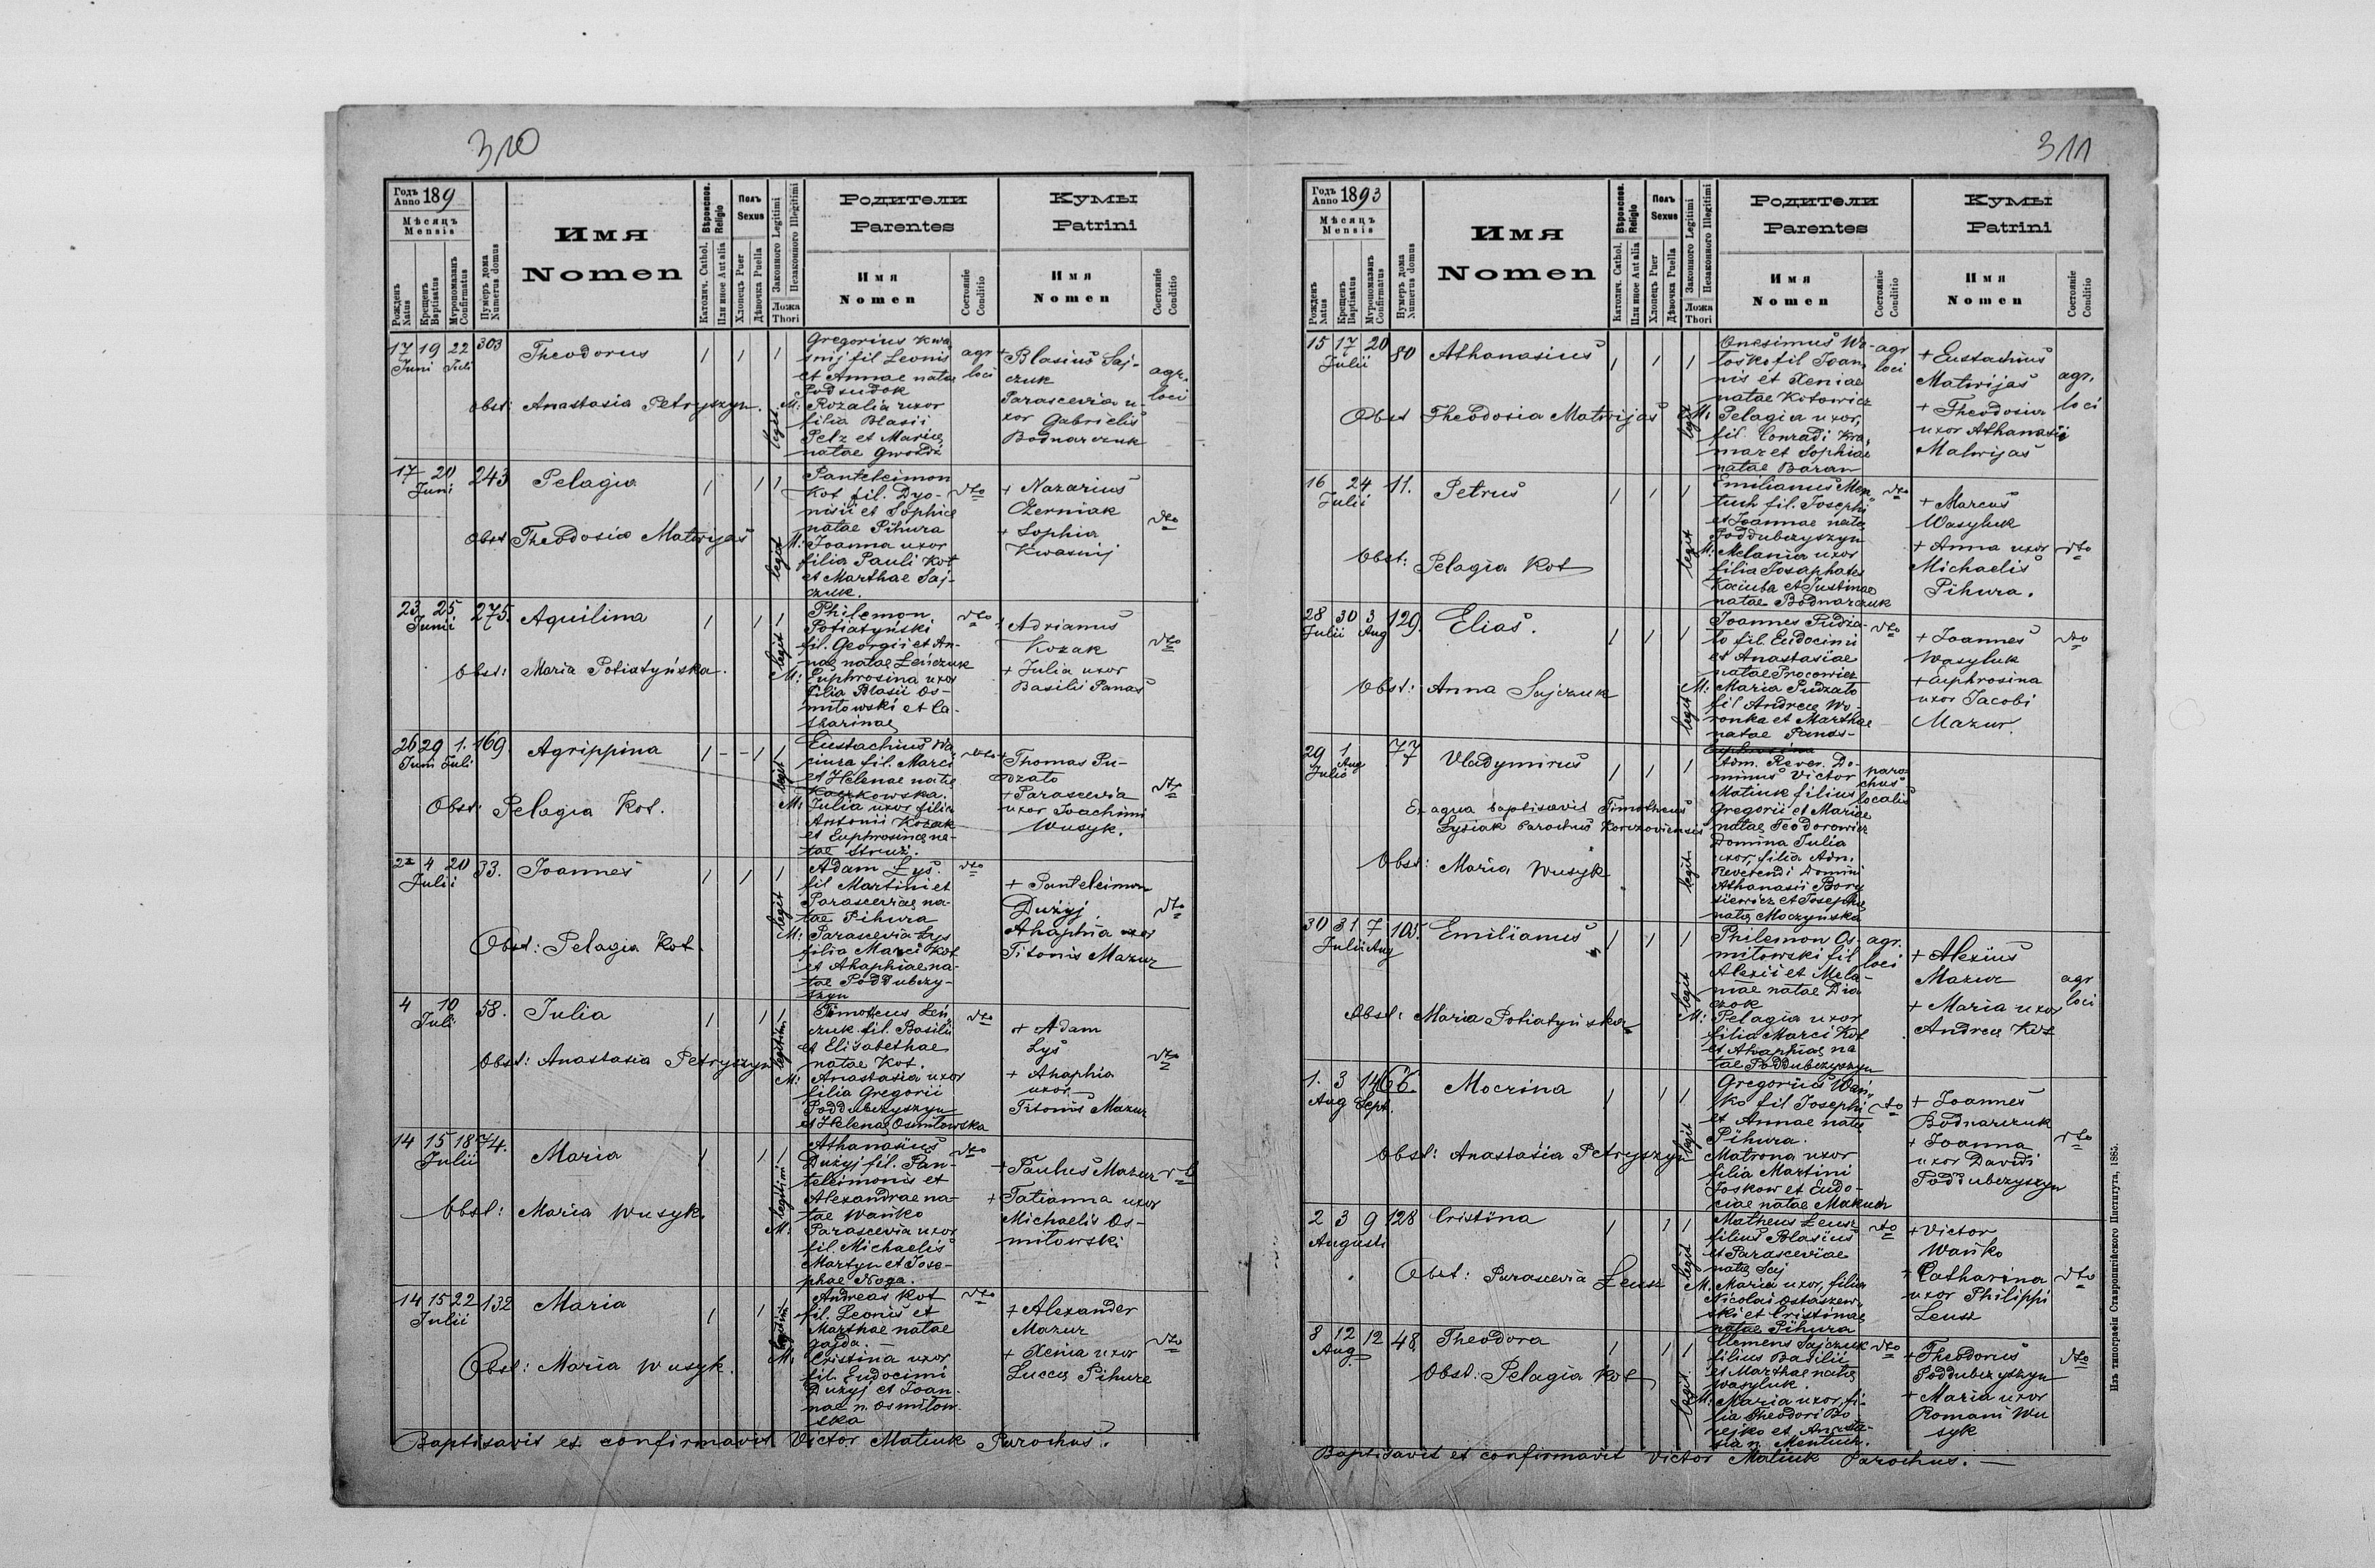 310
Годъ Anno 189
Мѣсяцъ
Mensis
Рожденъ Natus
Крещенъ Baptisatus
Мνропомазанъ Confirmatus
Нумеръ дома Numerus domus
Имя
Nomen
Вѣроиспов. Religio
Католич. Cathol.
Или иное Aut alia
Полъ
Sexus
Хлопецъ Puer
Дѣвочка Puella
Законного Legitimi
Незаконного Illegitimi
Ложа
Thori
Родители
Parentes
Имя
Nomen
Состояніе
Conditio
Кумы
Patrini
Имя
Nomen
Состояніе
Conditio
17 19 22 303
Juni Juli
Theodorus
Obst: Anastasia Petryszyn.
legit
Gregorius Kwa
snij fil Leonis
et Annae natae
Podsudok
M: Rozalia uxor
filia Blasii
Pelz et Mariae
natae Gwozdź
agr
loci
+ Blasius Saj-
czuk
Parascevia u-
xor Gabrielis
Bodnarczuk
agr.
loci
17 20 243
Juni
Pelagia
Obst Theodosia Matwijas
legit
Panteleimon
Kot fil. Dyo-
nisii et Sophiae
natae Pihura
M: Joanna uxor
filia Pauli Kot
et Marthae Saj-
czuk.
dto
+ Nazarius
Czerniak
+ Sophia
Kwasnij
dto
23 25 275.
Junii
Aquilina
Obst: Maria Potiatyńska.
legit
Philemon
Potiatyński
fil. Georgii et An-
nae natae Leńczuk
M: Euphrosina uxor
filia Blasii Os-
mitowski et Ca-
tharinae
dto
+ Adrianus
Kozak
+ Julia uxor
Basilii Panas
dto
26 29 1. 169.
Juni Juli
Agrippina
Obst: Pelagia Kot.
legit
Eustachius Wa
ciura fil. Marci
et Helenae natae
Kaczkowska.
M: Julia uxor filia
Antonii Kozak
et Euphrosinae na-
tae Struż.
dto
+ Thomas Pu-
dzato
+ Parascevia
uxor Joachimi
Wusyk.
dto
2 4 20 33.
Julii
Joannes
Obst: Pelagia Kot.
legit
Adam Łys.
fil Martini et
Parasceviae na-
tae Pihura
M: Parascevia Łys
filia Marci Kot
et Ahaphiae na-
tae Poddubczy-
szyn
dto
+ Panteleimon
Dużyj
Ahaphia uxor
Titonis Mazur
dto
4 10 58.
Juli
Julia
Obst: Anastasia Petryszyn
legitim
Timotheus Leń
czuk fil. Basilii
et Elisabethae
natae Kot.
M: Anastasia uxor
filia Gregorii
Poddubczyszyn
et Helenae Osmitowska
dto
+ Adam
Łys
+ Ahaphia
uxor
Titonis Mazur
dto
14 15 18 74.
Julii
Maria
Obst: Maria Wusyk.
legitimi
Athanasius
Dużyj fil. Pan-
teleimonis et
Alexandrae na-
tae Wańko
M: Parascevia uxor
fil. Michaelis
Martyn et Jose-
phae Noga.
dto
+ Paulus Mazur
+ Tatianna uxor
Michaelis Os-
mitowski
dto
14 15 22 132
Julii
Maria
Obst: Maria Wusyk.
legitim
Andreas Kot
fil. Leonis et
Marthae natae
Gajda.
M: Cristina uxor
fil. Eudocimi
Dużyj et Joan-
nae n. Osmitow-
ska
dto
+ Alexander
Mazur
+ Xenia uxor
Lucae Pihure
dto
Baptisavit et confirmavit Victor Matiuk Parochus.
311
Годъ Anno 1893
Мѣсяцъ
Mensis
Рожденъ Natus
Крещенъ Baptisatus
Мνропомазанъ Confirmatus
Нумеръ дома Numerus domus
Имя
Nomen
Вѣроиспов. Religio
Католич. Cathol.
Или иное Aut alia
Полъ
Sexus
Хлопецъ Puer
Дѣвочка Puella
Законного Legitimi
Незаконного Illegitimi
Ложа
Thori
Родители
Parentes
Имя
Nomen
Состояніе
Conditio
Кумы
Patrini
Имя
Nomen
Состояніе
Conditio
15 17 20 80
Julii
Athanasius
Obst Theodosia Matwijas
legit
Onesimus Wo-
tośko fil Joan
nis et Xeniae
natae Kotowicz
M: Pelagia uxor,
fil. Conradi Kra-
mar et Sophiae
natae Baran
agr
loci
+ Eustachius
Matwijas
+ Theodosia
uxor Athanasii
Matwijas
agr.
loci
16 24 11.
Julii
Petrus
Obst: Pelagia Kot
legit
Emilianus Men-
tuch fil. Josephi
et Joannae natae
Poddubczyszyn
M: Melania uxor
filia Josaphates
Kociuba et Justinae
natae Bodnarczuk
dto
+ Marcus
Wasyluk
+ Anna uxor
Michaelis
Pihura.
dto
28 30 3 129.
Julii Aug
Elias.
Obst: Anna Sajczuk
legit
Joannes Pudza-
to fil Eudocimi
et Anastasiae
natae Procowicz
M: Maria Pudzato
fil Andreae Wo-
ronka et Marthae
natae Panas-
dto
+ Joannes
Wasyluk
+ Euphrosina
uxor Jacobi
Mazur.
dto
29 1 77
Julii Aug
Vladymirus
Ex aqua baptisavit Timotheus
Łysiak Parochus Korczoviensis
Obst: Maria Wusyk
legit.
Euphrosina
Adm. Rever. Do-
minus Victor
Matiuk filius
Gregorii et Mariae
natae Teodorowicz
Domina Julia
uxor, filia Adm.
Reverendi Domini
Athanasii Bory
siewicz et Josephae
natae Moczyńska
paro-
chus
localis
30 31 7 105.
Julii Aug
Emilianus
Obst: Maria Potiatyńska
legit
Philemon Os-
mitowski fil
Alexii et Mela-
niae natae Dia
czok
M: Pelagia uxor
filia Marci Kot
et Ahaphiae na
tae Poddubczyszyn
agr.
loci
+ Alexius
Mazur
+ Maria uxor
Andreae Kot
agr
loci
1. 3 14 66.
Aug Sept.
Mocrina
Obst: Anastasia Petryszyn
legit
Gregorius Wań-
ko fil Josephi
et Annae natae
Pihura.
Matrona uxor
filia Martini
Joskow et Eudo-
ciae natae Makuch
dto
+ Joannes
Bodnarczuk
+ Joanna
uxor Davidi
Poddubczyszyn
dto
2 3 9 128
Augusti
Cristina
Obst: Parascevia Leusz
legit
Matheus Leusz
filius Blasius
et Parasceviae
natae Saj
M. Maria uxor, filia
Nicolai Ostaszew-
ski et Cristinae
natae Pihura
dto
+ Victor
Wańko
+ Catharina
uxor Philippi
Leusz
dto
8 12 12 48
Aug
Theodora
Obst: Pelagia Kot
legit
Clemens Sajczuk
filius Basilii
et Marthae natae
Wasyluk.
M: Maria uxor, fi-
lia Theodori Bo
rejko et Anasta-
sia n. Mentuch.
dto
+ Theodorus
Poddubczyszyn
+ Maria uxor
Romani Wu
syk
dto
Baptisavit et confirmavit Victor Matiuk Parochus.
Изъ типографіи Ставропигійского Института, 1885.